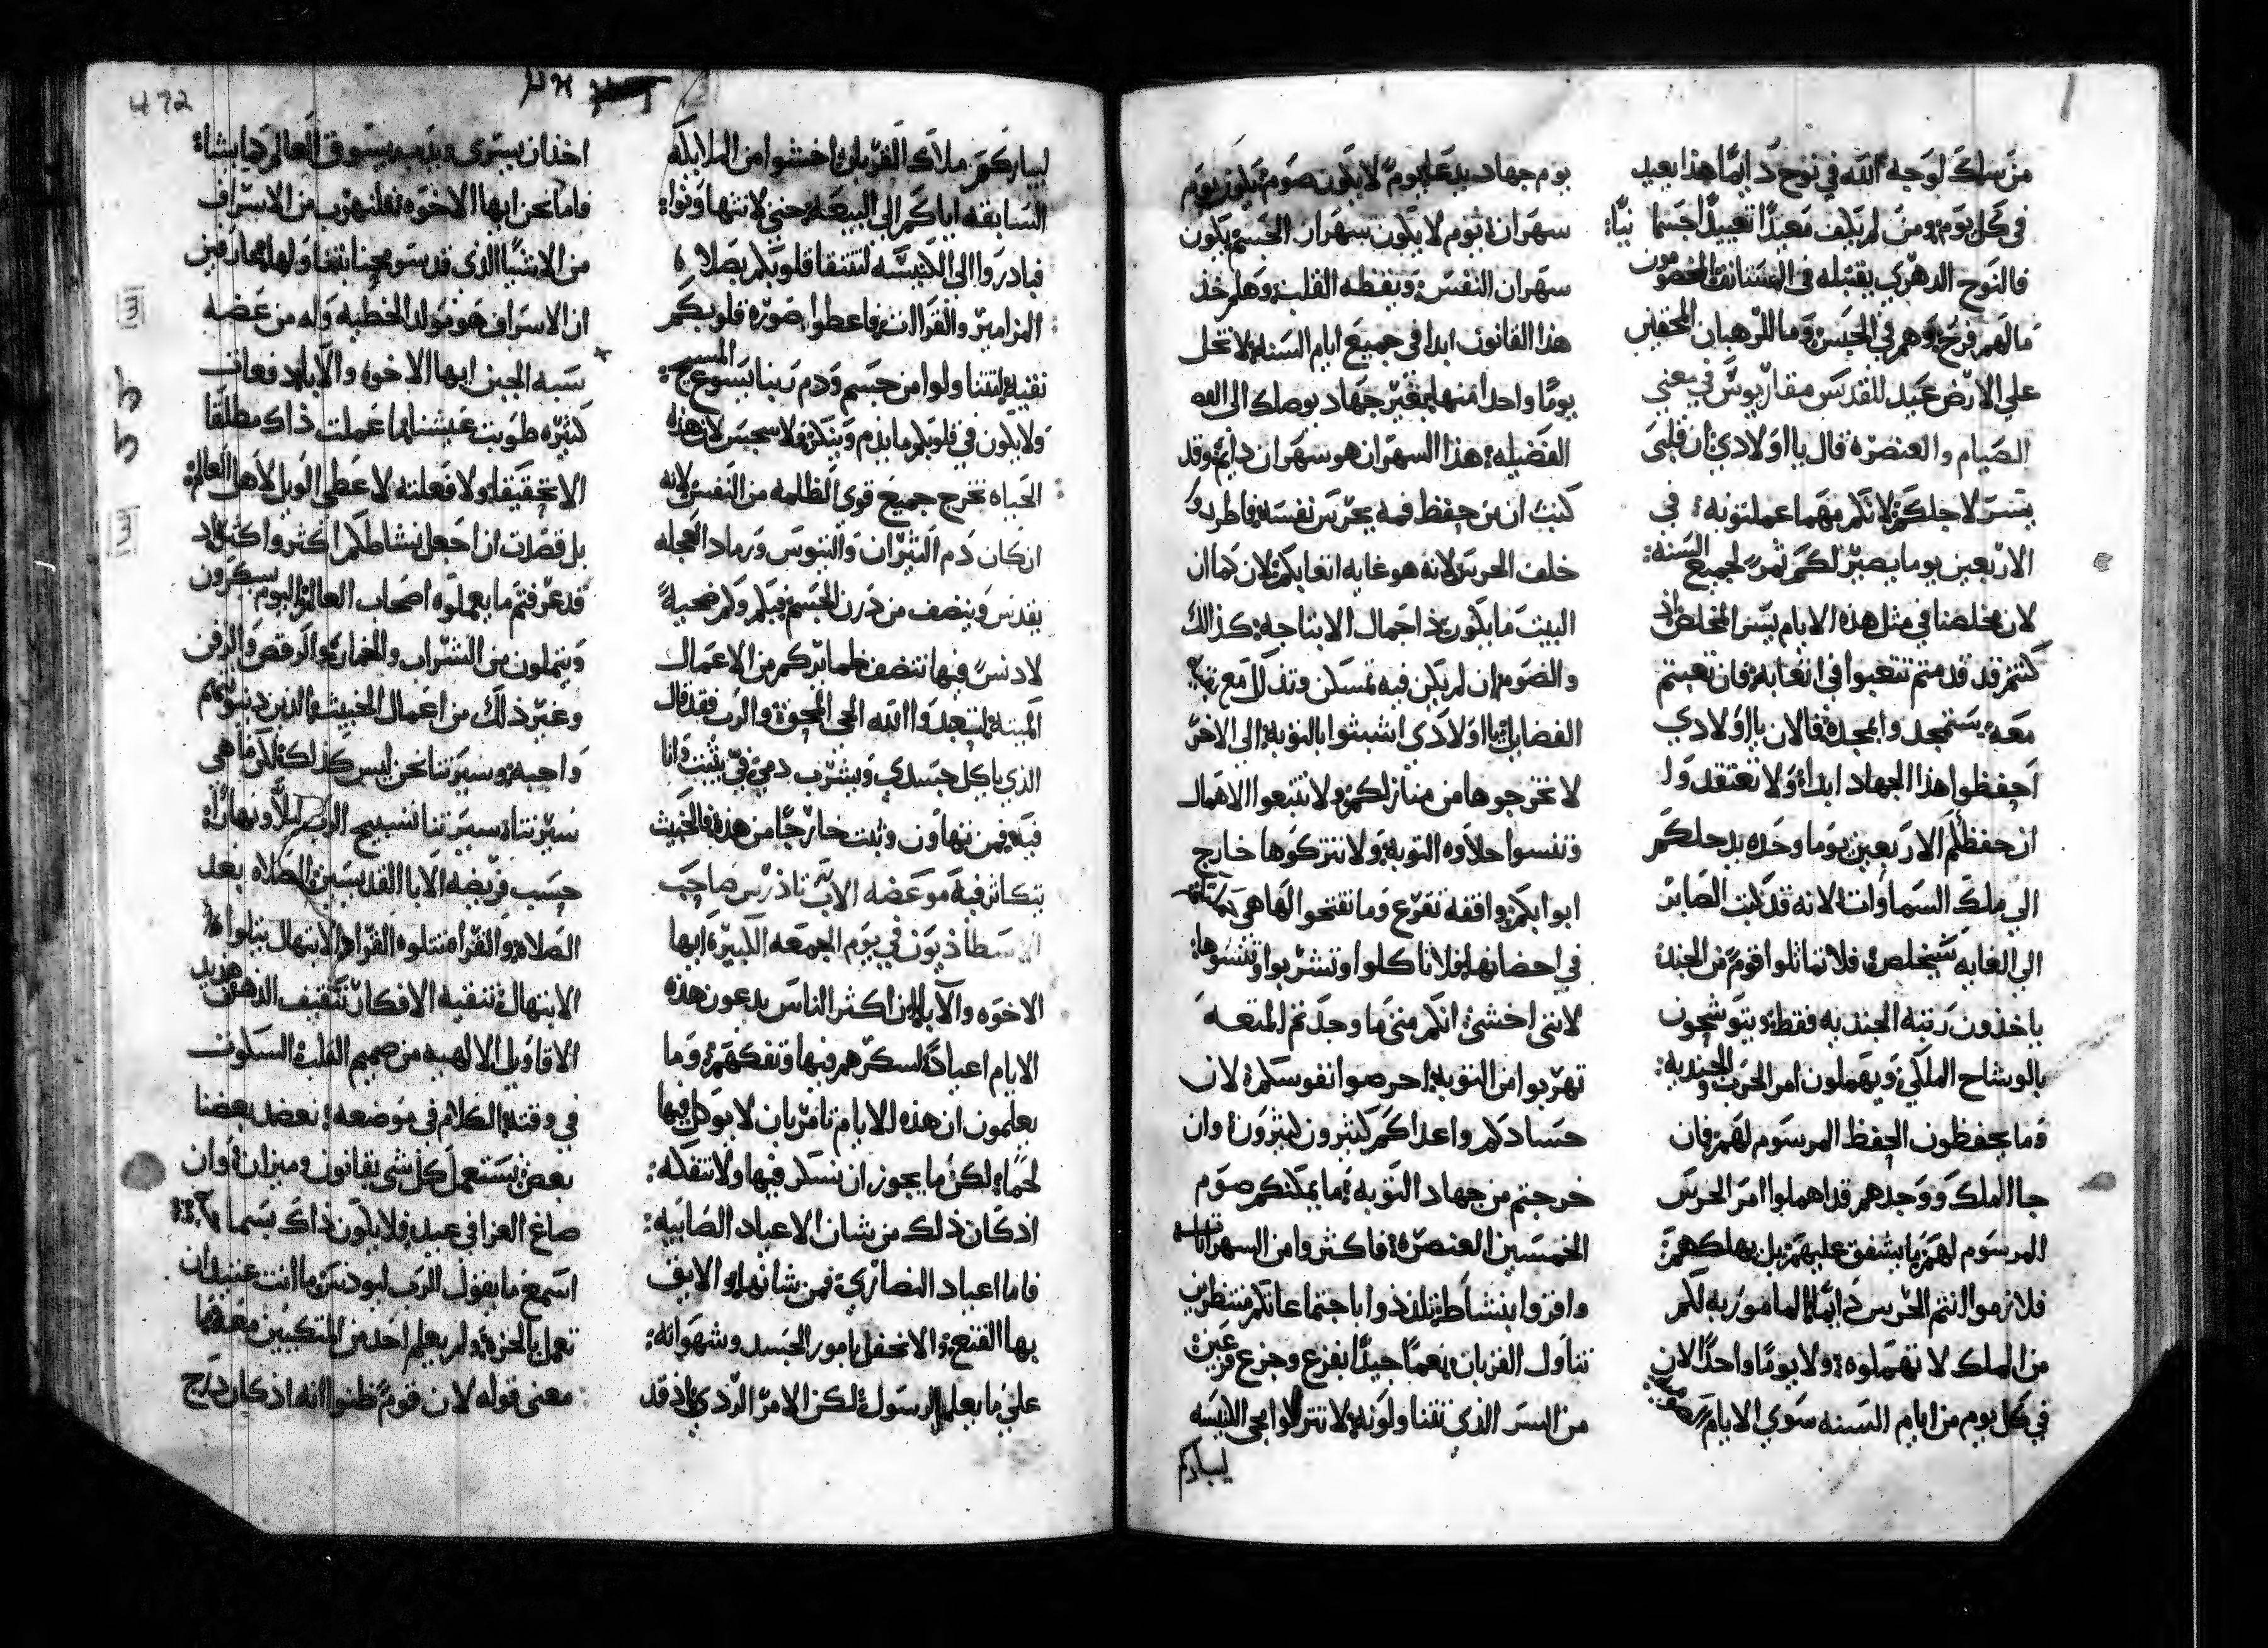 من سلك لوجه الله في نوح دايمًا هذا يعيد
في كل يوم ومن لم يكف معيدًا تعييدًا جسما نيًا:
فالنوح الدهري يقبله في المستانف المخصومون
ما لهم فرح وهم في الحبس وما للرهبان المحقين
علي الارض عيد للقدس مقاريوس في معني
الصيام والعنصرة قال يا اولادي ان قلبي
يتسر لاجلكم لانكم مهما عملتونه في
الاربعين يوما يصير لكم ثمر لجميع السنه:
لان مخلصنا في مثل هذه الايام يتسر المخلص اذ
كنتم قد قدمتم تتعبوا في اتعابه فان تعبتم
معه يستمجد وا بمجده فالان يا اولادي
احفظوا هذا الجهاد ابدا ولا تعتقدوا
ان حفظكم الاربعين يوما وحده يدخلكم
الي ملك السماوات لانه قد كتب الصابر
الي الغايه سيخلص فلا تماثلوا قوم من الجند
ياخذون رتبة الجنديه فقط ويتوشحون
بالوشاح الملكي ويهملون امر الحرب والجنديه:
وما يحفظون الحفظ المرسوم لهم فان
جا الملك ووجدهم قد اهملوا امر الحرس
المرسوم لهم ما يشفق عليهم بل يهلكهم
فلازموا انتم الحرس دايمًا المامور به لكم
من الملك لا تهملوه ولا يومًا واحدًا لان
في كل يوم من ايام السنه سوي الايام
يوم جهاد يدعا يوم لا يكون صوم يكون يوم
سهران يوم لا يكون سهران الجسم يكون
سهران النفس ويقظه القلب وهلم خذ
هذا القانون ابدا في جميع ايام السنه لا تخل
يومًا واحدا منها بغير جهاد يوصلك الى
الفضيله هذا السهران هو سهران دايم وقد
كتب ان من حفظ فمه يحرس نفسه فاطردوا
خلف الحرس لانه هو غايه اتعابكم لان كما ان
البيت ما يكون ذا جمال الا بتاجه كذالك
والصوم ان لم يكن فيه تمسكن وتذلل مع
الفضايل يا اولادي اشبثوا بالتوبه الي الاخر
لا تخرجوها من منازلكم ولا تتبعوا الاهمال
وتنسوا حلاوه التوبه ولا تتركوها خارج
ابوابكم واقفه تقرع وما تفتحوا لها هي
في احضانها فلا تاكلوا وتشربوا وتنسوها:
لانني اخشي انكم متي ما وجدتم المتعه
تهربوا من التوبه احرصوا نفوسكم لان
حسادكم واعداكم كثيرون كثيرون وان
خرجتم من جهاد التوبه ما يمكنكم صوم
الخمسين العنصره فاكثروا من السهر
واقروا بنشاط تلذذوا باجتماعاتكم منتظرين
تناول القربان نعما جيدًا بفزع وجزع مرتعبين
من السر الذي تتناولونه لا تتركوا مجي الكنيسه
ليبارككم
ليبارككم ملاك القربان اخشوا من الملايكه
السابقه اياكم الي البيعه حتي لا تتهاونوا:
فبادروا الي الكنيسه لتتنقا قلوبكم بصلاه
المزامير والقراات فاعطوا صورة قلوبكم
نقيه لتتناولوا من جسم ودم ربنا يسوع المسيح:
ولا يكون في قلوبكم ما يذم وينكر ولا سجس لان هذه
الحياه تخرج جميع قوي الظلمه من النفس لانه
ان كان دم الثيران والتيوس ورماد العجله
يقدس وينضف من درن الجسم فبكم ولم ضحية
لا دنس فيها تنضف ضمايركم من الاعمال
الميته لتعبدوا الله الحي المحوة والرب فقد قال
الذي ياكل جسدي ويشرب دمي في يثبت وانا
فيه فمن تهاون وثبت خارجًا من هذه فالخبيث
يتكاثر فيه موعضه الاب تاذرس صاحب
الاسطاذيون في يوم الجمعه الكبيرة ايها
الاخوه والابا ان اكثر الناس يدعون هذه
الايام اعيادًا لسكرهم فيها وتفكههم وما
يعلمون ان هذه الايام تامر بان لا يوكل فيها
لحمًا لكن ما يجوز ان نسكر فيها ولا نتفكه:
اذ كان ذلك من شان الاعياد الصابيه:
فاما اعياد النصاري فمن شانها والايق
بها القنع والا نحفل بامور الجسد وشهواته:
علي ما يعلم الرسول لكن الامر الردي اذ قد
اخذ ان يسري ويذهب يسوق العالم كما يشا:
فاما نحن ايها الاخوه فلنهرب من الاسراف
من الاشيا الذي قد سومحنا بتناولها عارفين
ان الاسراف هو مولد الخطيه وله من عضه
نسبه الجبن ايها الاخوه والابا قد فعلت
كثره طويت عيشنا ما عملت ذاك مطلقا
الا تحقيقا ولا فعلته لاعطي الويل لاهل العالم:
بل قصدت ان اجعل نشاطكم اكثر واكثر اذ
قد عرفتم ما يعملوه اصحاب العالم اليوم يسكرون
ويتملون من الشراب والخمار والرقص والزفن
وغير ذلك من اعمال الخبيث والذين دينونتهم
واجبه وسيرتنا نحن ليس كذلك لكن ما هي
سيرتنا سيرتنا تسبيح الرب ليلًا ونهارًا:
حسب فريضه الابا القديسين الصلاه بعد
الصلاه والقراه تتلوه القراه الابتهال يتلوا
الابتهال تنقيه الافكار تثقيف الذهن هذيذ
الاقاويل الالهيه من صميم القلب السكوت
في وقته الكلام في موضعه نعضد بعضنا
بعض نستعمل كل شي بقانون وميزان وان
صاغ العزا في عبد فلا يكون ذاك بسما
اسمع ما يقول الرب ليودس ما انت عتيد ان
تعمل بالحزه ولم يعلم احد من المتكيين معهما
معني قوله لان قوم ظنوا انه اذ كان درج
472